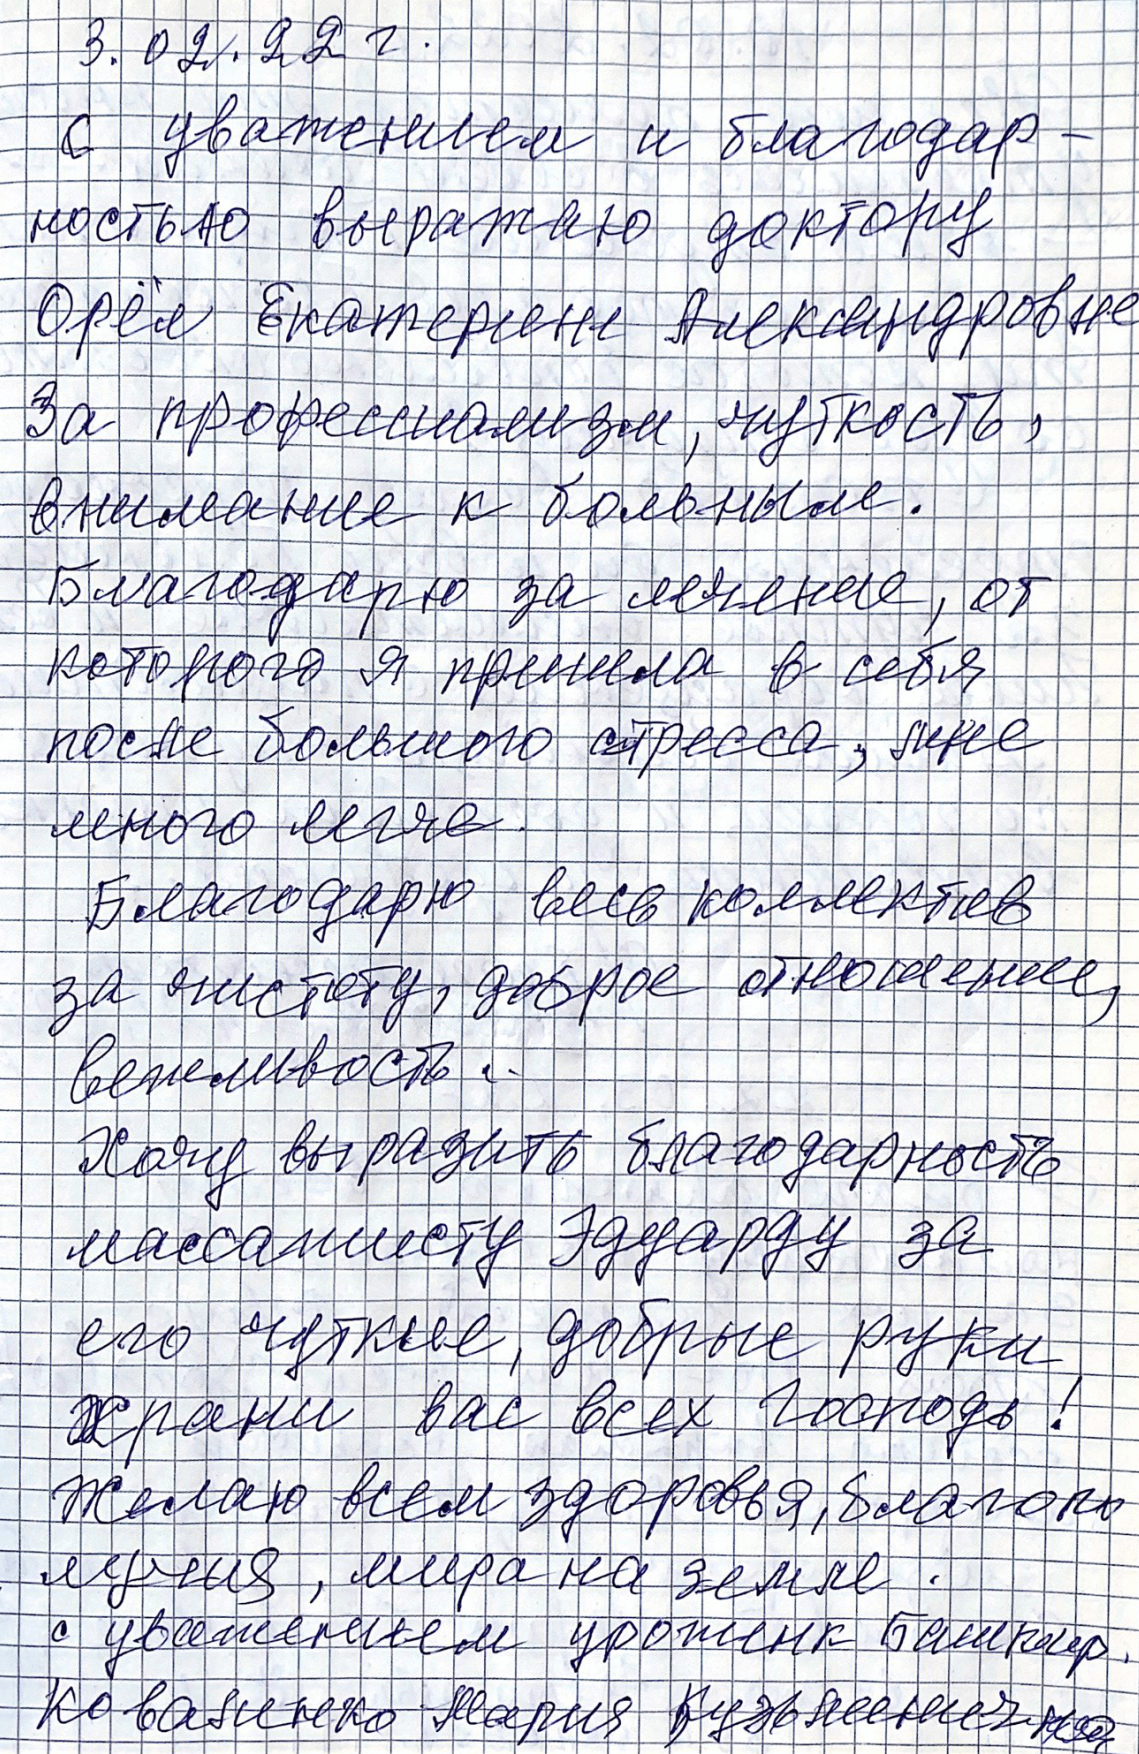 3.02.22 г.
С уважением и благодар-
ностью выражаю доктору
Орёл Екатерине Александровне
За профессиализм, чуткость,
внимание к больным.
Благодарю за лечение, от
которого я пришла в себя
после большого стресса, мне
много легче.
Благодарю весь коллектив
за чистоту, доброе отношение,
вежливость.
Хочу выразить благодарность
массажисту Эдуарду за
его чуткие, добрые руки
храни вас всех Господь!
Желаю всем здоровья, благопо
лучия, мира на земле.
с уважением уроженк Башкир.
Мария